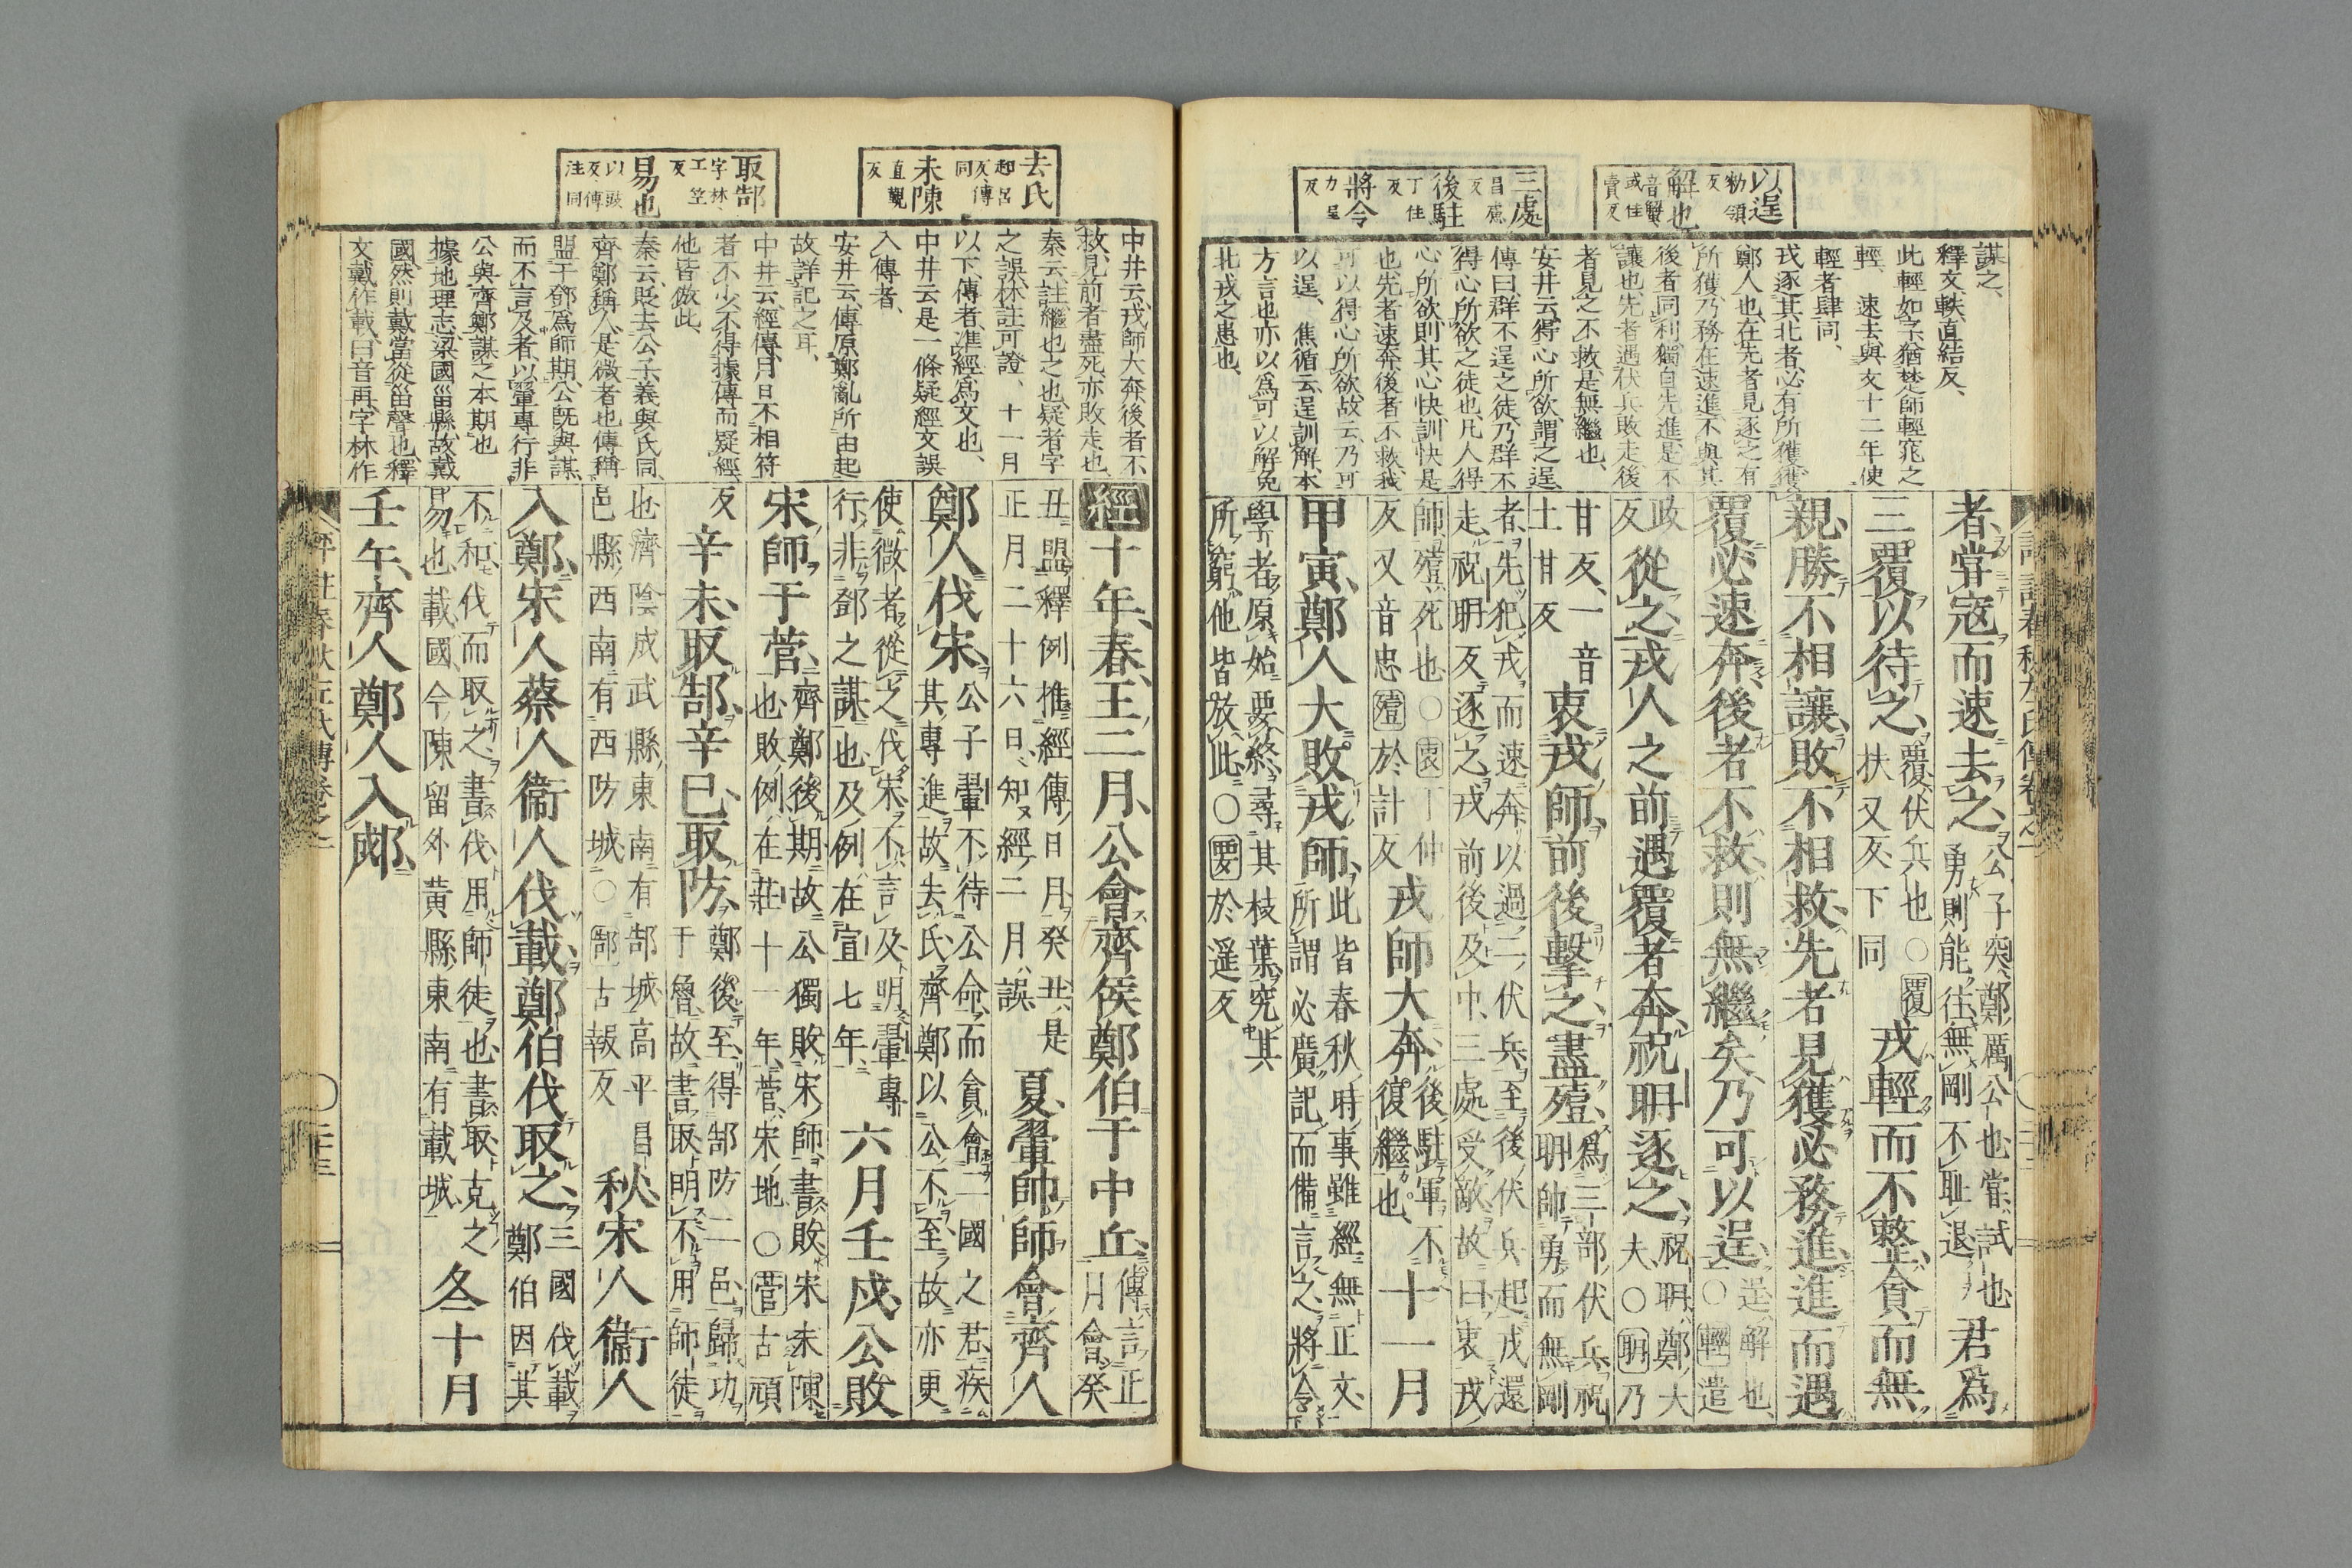 以逞
勑領
反
解也
音蟹
或佳
賣反
三處
昌慮
反
後駐
丁住
反
將令
力呈
反
謀之、
釋文、軼直結反、
此輕如字、猶楚師輕窕之
輕、速去與、文十二年使
輕者肆同、
戎逐其北者、必有所獲、獲
鄭人也、在先者見逐之有
所獲、乃務在速進、不與其
後者同利、獨自先進、是不
讓也、先者遇伏兵敗走、後
者見之不救、是無繼也、
安井云、得心所欲、謂之逞、
傳曰群不逞之徒、乃群不
得心所欲之徒也、凡人得
心所欲則其心快、訓快是
也、先者速奔、後者不救、我
可以得心所欲、故云乃可
以逞、焦循云、逞訓解、本
方言也、亦以為可以解免
北戎之患也、
者嘗寇而速去之、公子突、鄭厲公也、嘗試也、勇則能往、無剛不恥退、君為
三覆以待之、覆、伏兵也○覆扶又反、下同戎輕而不整、貪而無
親、勝不相讓、敗不相救、先者見獲必務進、進而遇
覆必速奔、後者不救、則無繼矣、乃可以逞、逞、解也、○輕遣
政反從之、戎人之前遇覆者奔、祝聃逐之、祝聃、鄭大夫○聃乃
甘反、一音土甘反衷戎師、前後擊之、盡殪、為三部伏兵、祝聃帥勇而無剛
者、先犯戎而速奔、以遇二伏兵、至後伏兵起、戎還走、祝聃反逐之、戎前後及中三處受敵、故曰衷戎
師、殪、死也○衷丁仲反又音忠殪於計反戎師大奔、後駐軍、不復繼也、十一月
甲寅、鄭人大敗戎師、此皆春秋時事、雖經無正文、所謂必廣記而備言之、將令
學者原始要終、尋其枝葉、究其所窮、他皆放此○要於遥反
去氏
起呂
反、傳
同
未陳
直覲
反
取郜
字林、
工笠
反
易也
以豉
反、傳
注同
中井云、戎師大奔、後者不
救、見前者盡死、亦敗走也、
秦云、註繼也之也、疑者字
之誤、林註可證、十一月
以下、傳者准經為文也、
中井云、是一條疑經文誤
入傳者、
安井云、傳原鄭亂所由起
故詳記之耳、
中井云、經傳月日不相符
者不少、不得據傳而疑經
他皆倣此、
秦云、貶去公子、義與氏同、
齊鄭稱人、是微者也、傳稱
盟于鄧為師期、公既與謀
而不言及者、以翬專行、非
公與齊鄭謀之本期也
據地理志、梁國甾縣、故戴
國、然則戴當從甾聲也、釋
文戴作載、曰音再、字林作
經十年、春、王二月、公會齊侯鄭伯于中丘、傳言正月會、癸
丑盟、釋例推經傳日月、癸丑、是正月二十六日、知經二月誤夏、翬帥師會齊人
鄭人伐宋、公子翬不待公命、而貪會二國之君、疾其專進、故去氏、齊鄭以公不至、故亦更
使微者從之伐宋、不言及、明翬專行、非鄧之謀也、及例在宣七年、六月壬戌、公敗
宋師于菅、齊鄭後期、故公獨敗宋師、書敗、宋未陳也、敗例在莊十一年、菅、宋地○菅古頑
反辛未、取郜、辛巳、取防、鄭後至、得郜防二邑、歸功于魯、故書取、明不用師徒
也、濟陰成武縣東南有郜城、高平昌邑縣西南有西防城、○郜古報反秋、宋人衞人
入鄭、宋人蔡人衞人伐載、鄭伯伐取之、三國伐載、鄭伯因其
不和、伐而取之、書伐、用師徒也、書取、克之易也、載國、今陳留外黃縣東南有載城、冬十月
壬午、齊人鄭人入郕、